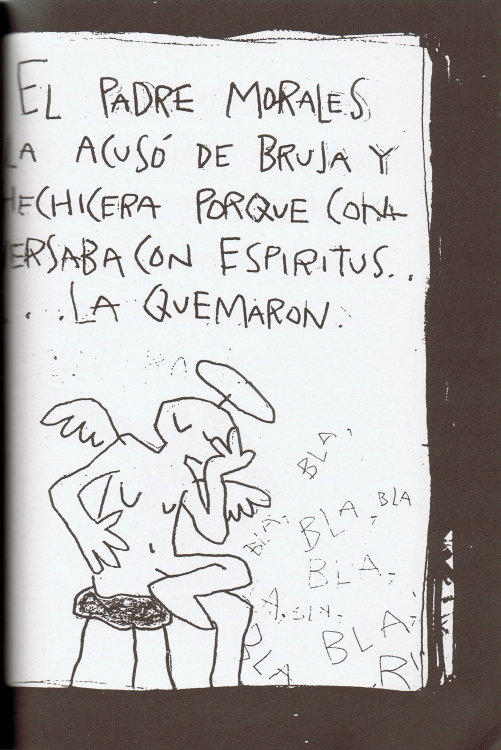 EL PADRE MORALES
LA ACUSÓ DE BRUJA Y
HECHICERA PORQUE CON
VERSABA CON ESPIRITUS..
...LA QUEMARON.
BLA,
BLA
BLA,
BLA,
BLA,
BLA,
BLA